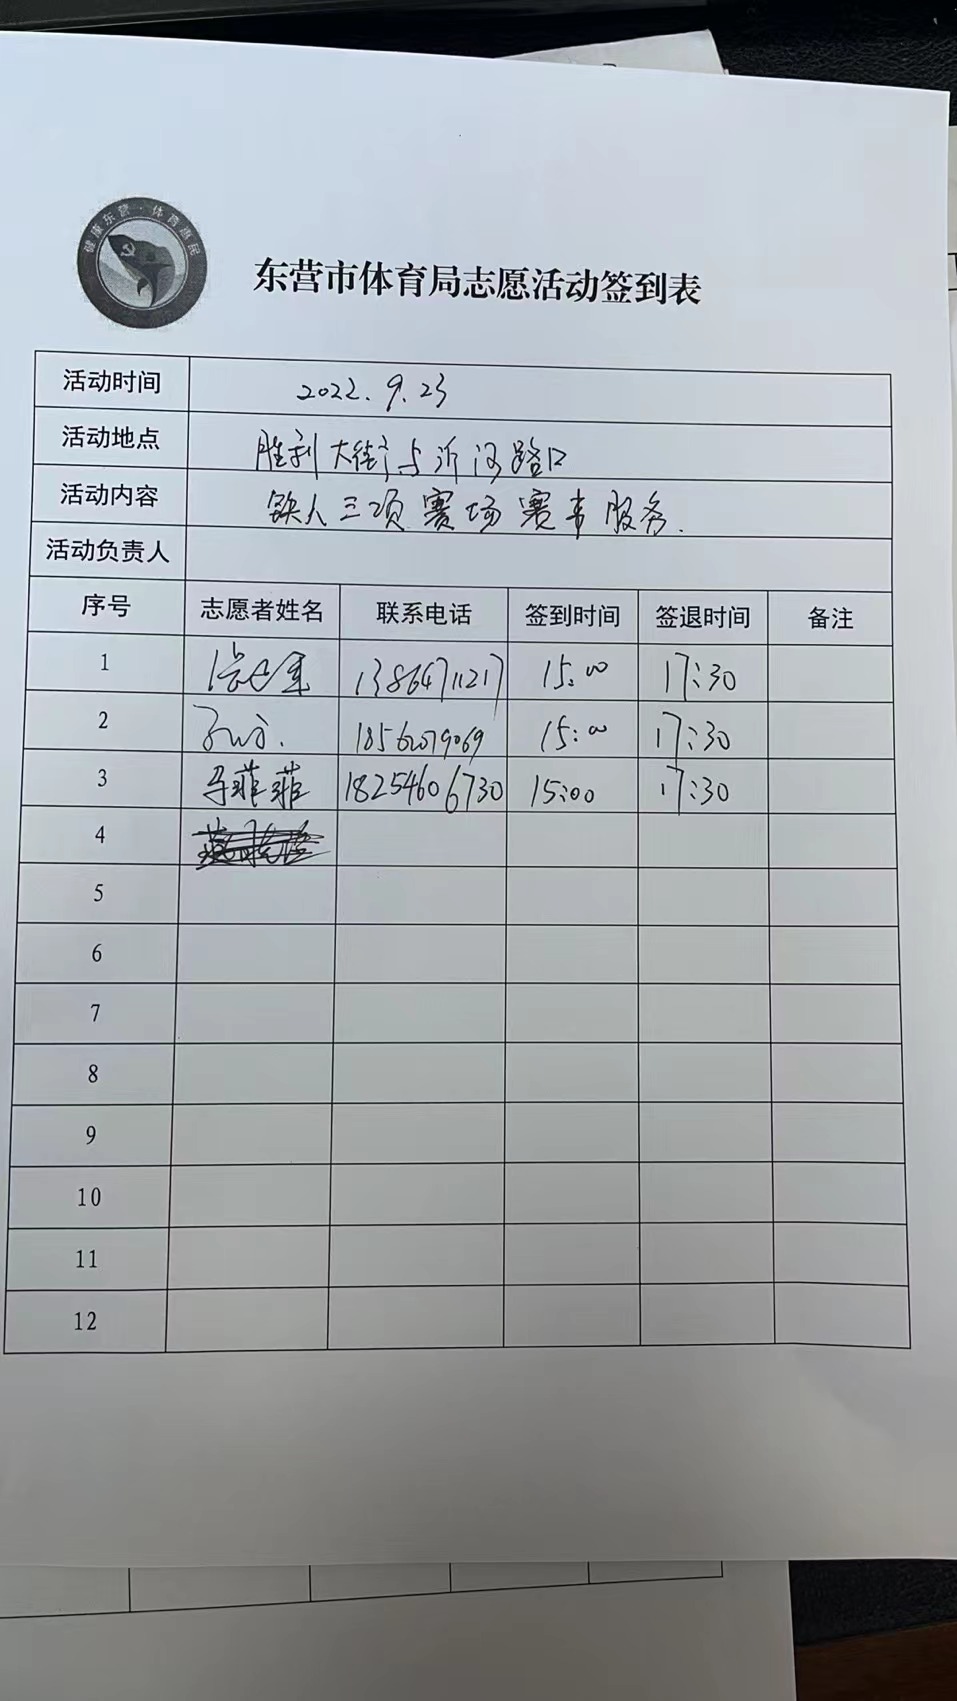 健康东营·体育惠民
东营市体育局志愿活动签到表
活动时间 2022.9.23
活动地点 胜利大街与沂河路口
活动内容 铁人三项赛场赛事服务.
活动负责人
序号 志愿者姓名 联系电话 签到时间 签退时间 备注
1 13864711217 15:00 17:30
2 15:00 17:30
3 马菲菲 18254606730 15:00 17:30
4
5
6
7
8
9
10
11
12